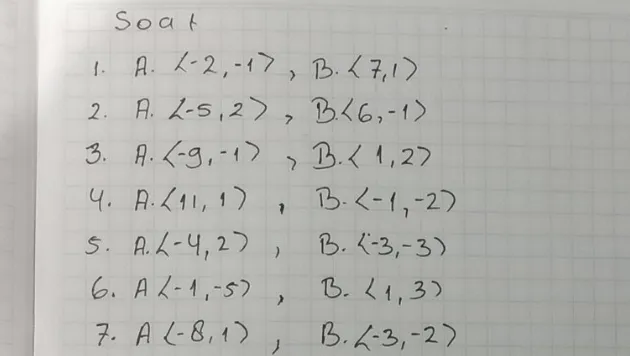 Soat
1. A. <-2,-1>, B. <7,1>
2. A. <-5,2>, B.<6,-1>
3. A.<-9,-1>, B.<1,2>
4. A.<11,1>, B.<-1,-2>
5. A.<-4,2>, B.<-3,-3>
6. A<-1,-5>, B. <1,3>
7. A<-8,1>, B.<-3,-2>